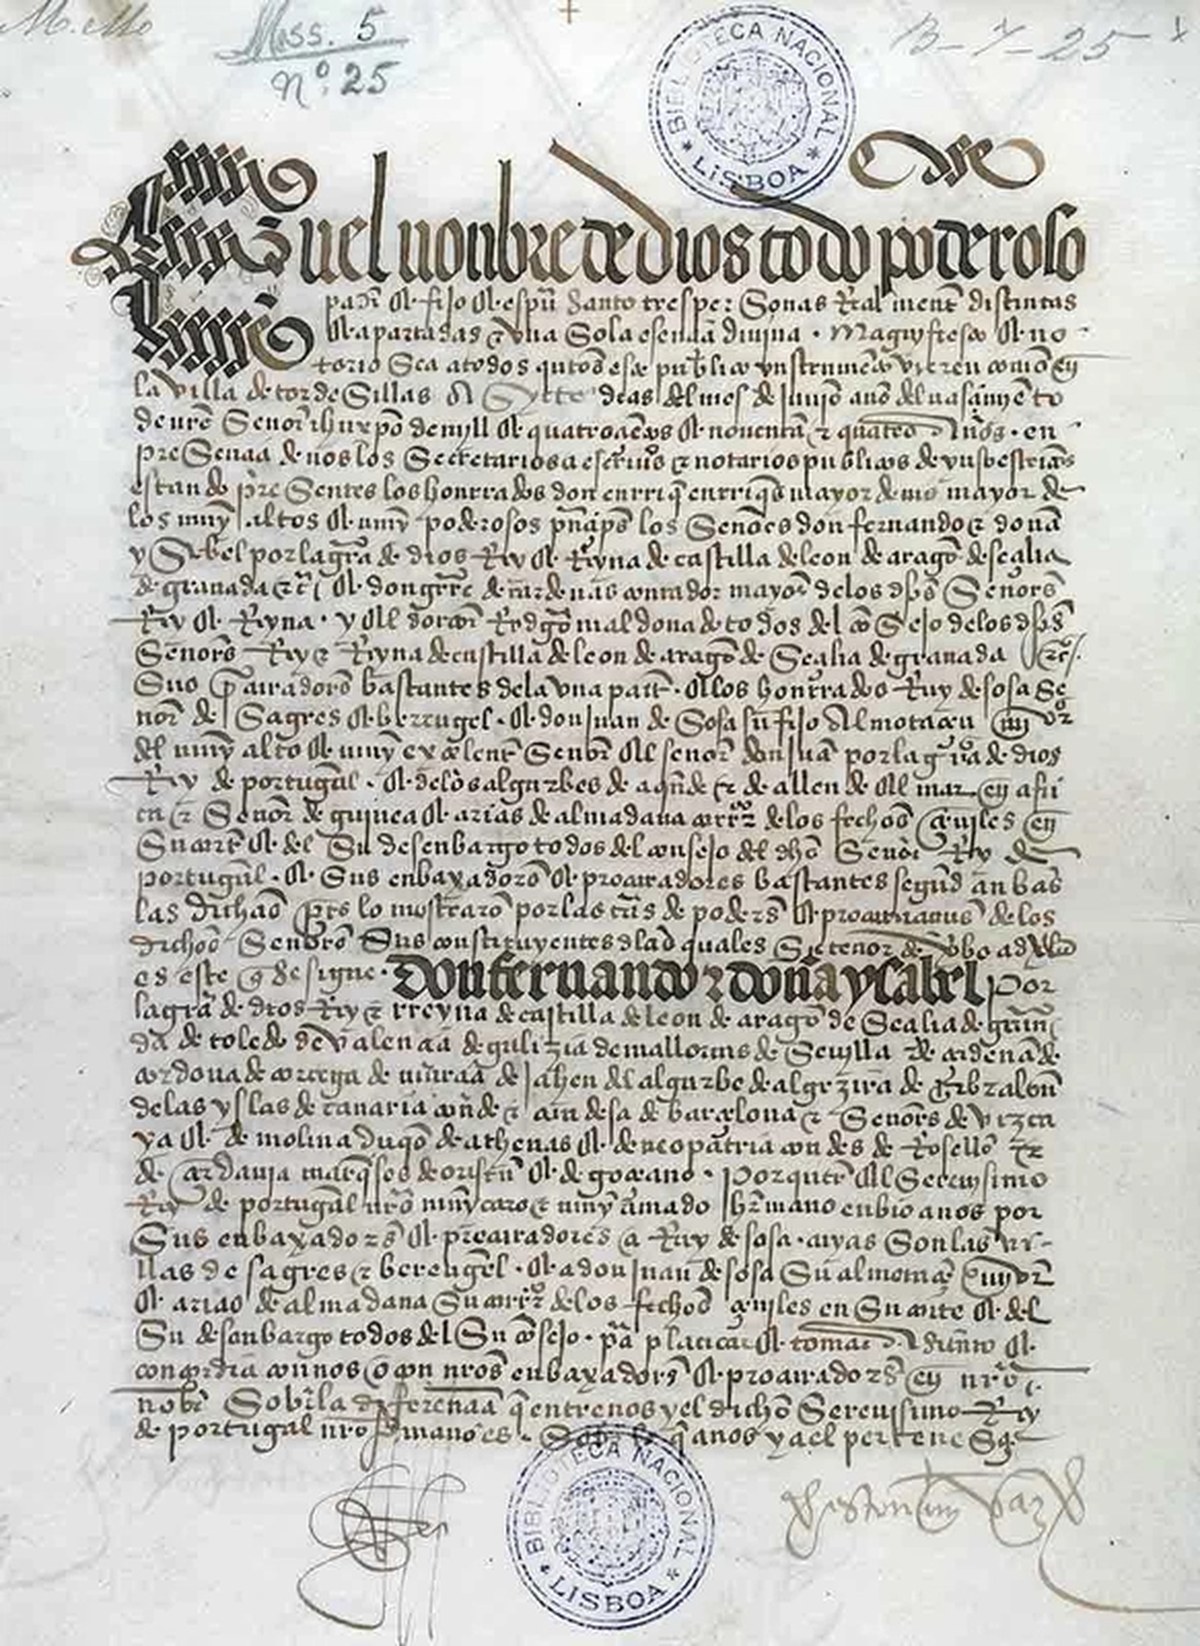 Mss. 5
Nº 25
B-7-25
BIBLIOTECA NACIONAL
LISBOA
En el nonbre de dios todo poderoso
padre & fijo & espu santo tres personas Real mente distintas
& apartadas & vna Sola esençia diuina. Magnyfiesto & no
torio Sea a todos quantos este publico ynstrumento vieren como en
la villa de tordeSillas A Syete dias del mes de junjo año del nasçimyento
de nro Señor ihu xpo de myll & quatroçientos & nouenta & quatro Años. en
preSençia de nos los Secretarios & escriuanos & notarios publicos de yuso escriptos
estando preSentes los honrrados don enrrique enrriques mayordomo mayor de
los muy altos & muy poderosos prinçipes los Señores don fernando & doña
ySabel por la graçia de dios Rey & Reyna de castilla de leon de aragon de seçilia
de granada etc. & don gutierre de cardenas contador mayor de los dichos Señores
Rey & Reyna. y el dottor Rodrigo maldonado todos del conSejo de los dichos
Señores Rey & Reyna de castilla de leon de aragon de Seçilia de granada etc.
Sus procuradores bastantes de la vna parte. & los honrrados Ruy de sosa Se
ñor de Sagres & berengel. & don juan de Sosa su fijo Almotaçen mayor
del muy alto & muy exçelente Señor el señor don juan por la graçia de dios
Rey de portugal. & de los algarbes de aquende & de allende el mar en afri
ca & Señor de guinea & arias de almadana corregidor de los fechos çeuiles en
Su corte & del Su desenbargo todos del consejo del dicho Señor Rey de
portugal. & Sus enbaxadores & procuradores bastantes segund anbas
las dichas partes lo mostraron por las cartas de poderes & procuraçiones de los
dichos Señores Sus constituyentes de las quales Su tenor de verbo ad verbo
es este que se sigue. Don fernando & doña ysabel por
la graçia de dios Rey & rreyna de castilla de leon de aragon de Seçilia de grana
da de toledo de Valençia de galizia de mallorcas de Seuilla de çerdeña de
cordoua de corçega de murçia de jahen del algarbe de algezira de gibraltar
de las yslas de canaria conde & condesa de barçelona & Señores de vizca
ya & de molina duques de athenas & de neopatria condes de Rosellon &
de çerdania marqueses de oristan & de goçeano. Por quanto el Serenisimo
Rey de portugal nro muy caro & muy amado hermano enbio a nos por
Sus enbaxadores & procuradores a Ruy de sosa. cuyas Son las vi-
llas de sagres & berengel. & a don juan de sosa Su almotaçen mayor
& arias de almadana Su corregidor de los fechos çeuiles en Su corte & del
Su desenbargo todos del Su consejo. para platicar & tomar Asiento &
concordia con nos o con nros enbaxadores & procuradores en nro
nonbre Sobre la diferençia que entre nos y el dicho Serenissimo Rey
de portugal nro hermano es. Sobre lo que a nos y a el perteneSçe
BIBLIOTECA NACIONAL
LISBOA